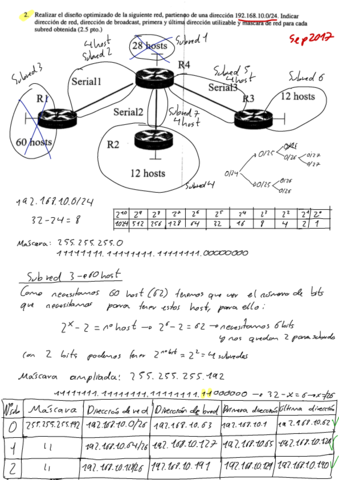 2. Realizar el diseño optimizado de la siguiente red, partiendo de una dirección 192.168.10.0/24. Indicar
dirección de red, dirección de broadcast, primera y última dirección utilizable y máscara de red para cada
subred obtenida (2.5 pto.)
Sep 2017
4 host
Subred 2
28 hosts
Subred 1
Subred 3
R4
Serial1
Subred 5
4 host
Subred 6
R1
Serial3
Serial2
Subred 7
4 host
R3
12 hosts
60 hosts
R2
12 hosts
Subred 4
0/24
0/25
0/25
0/26
0/26
0/27
0/27
192.168.10.0/24
32-24=8
2¹⁰ 2⁹ 2⁸ 2⁷ 2⁶ 2⁵ 2⁴ 2³ 2² 2¹ 2⁰
1024 512 256 128 64 32 16 8 4 2 1
Máscara: 255.255.255.0
11111111.11111111.11111111.00000000
Subred 3 → 60 host
Como necesitamos 60 host (62) tenemos que ver el número de bits
que necesitamos para tener estos host, para ello:
2ˣ - 2 = nº host → 2⁶ - 2 = 62 → necesitamos 6 bits
y nos quedan 2 para subredes
con 2 bits podemos tener 2ⁿ ᵇⁱᵗ = 2² = 4 subredes
Máscara ampliada: 255.255.255.192
11111111.11111111.11111111.11000000 → 32-x=6 → /26
Nºsub Máscara Dirección de red Dirección de broad Primera dirección Última dirección
0 255.255.255.192 192.168.10.0/26 192.168.10.63 192.168.10.1 192.168.10.62
1 11 192.168.10.64/26 192.168.10.127 192.168.10.65 192.168.10.126
2 11 192.168.10.128/26 192.168.10.191 192.168.10.129 192.168.10.190